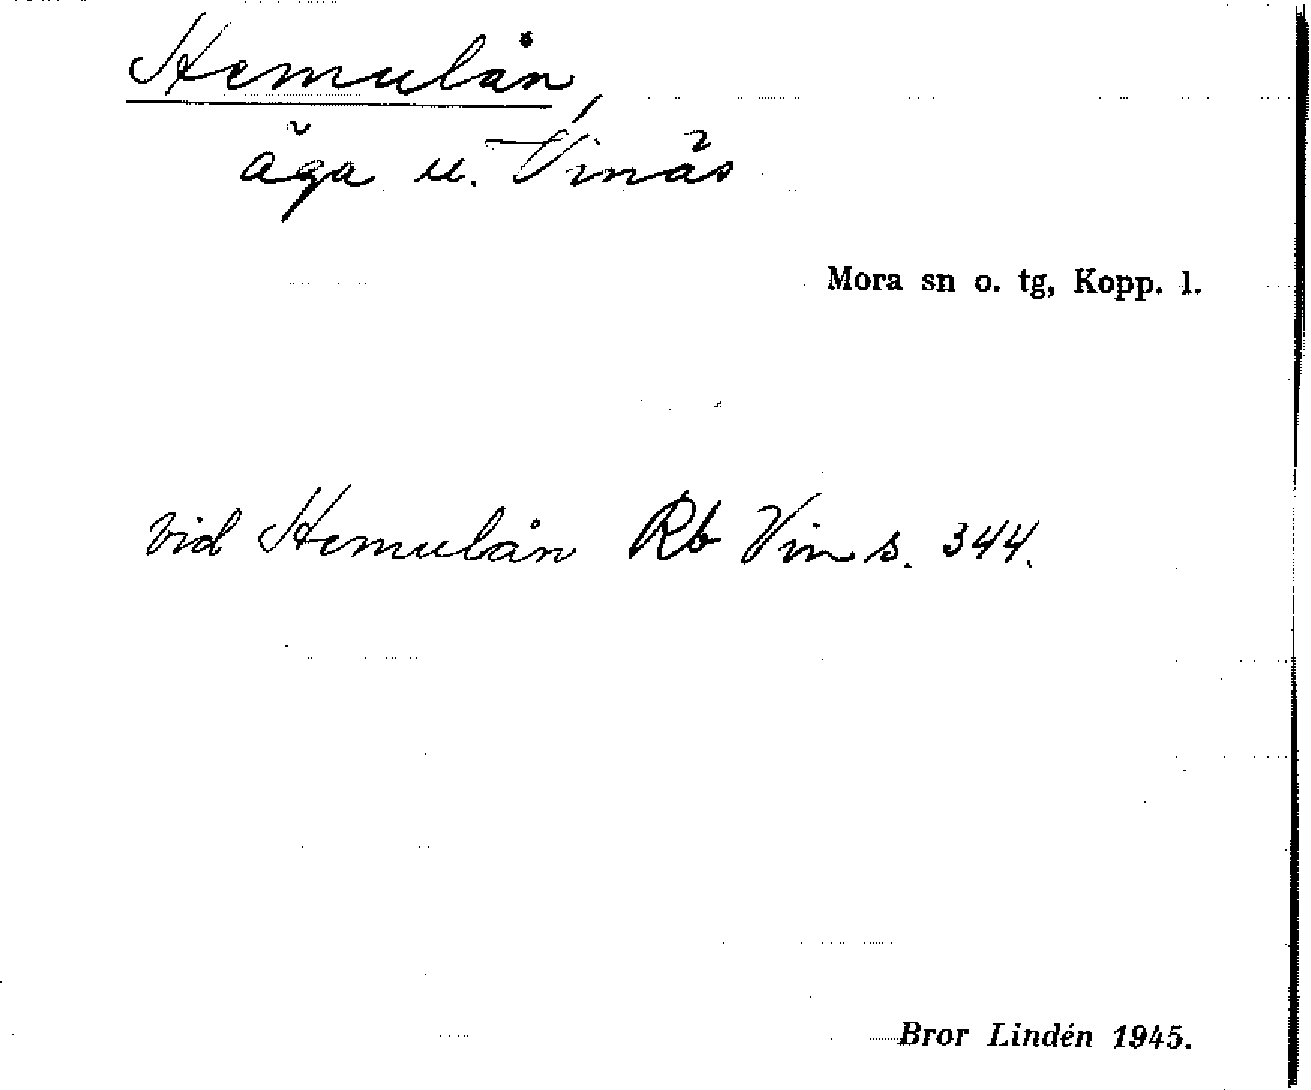 Hemulån,
äga u. Vinäs
Mora sn o. tg, Kopp. l.
vid Hemulån Rb Vin s. 344.
Bror Lindén 1945.